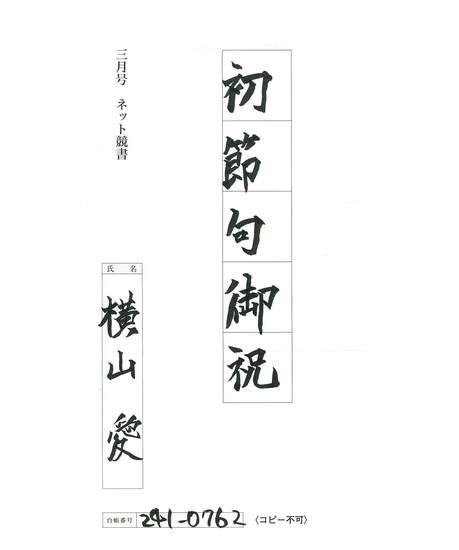 初節句御祝
三月号 ネット競書
氏名
横山 愛
台帳番号 241-0762 〈コピー不可〉